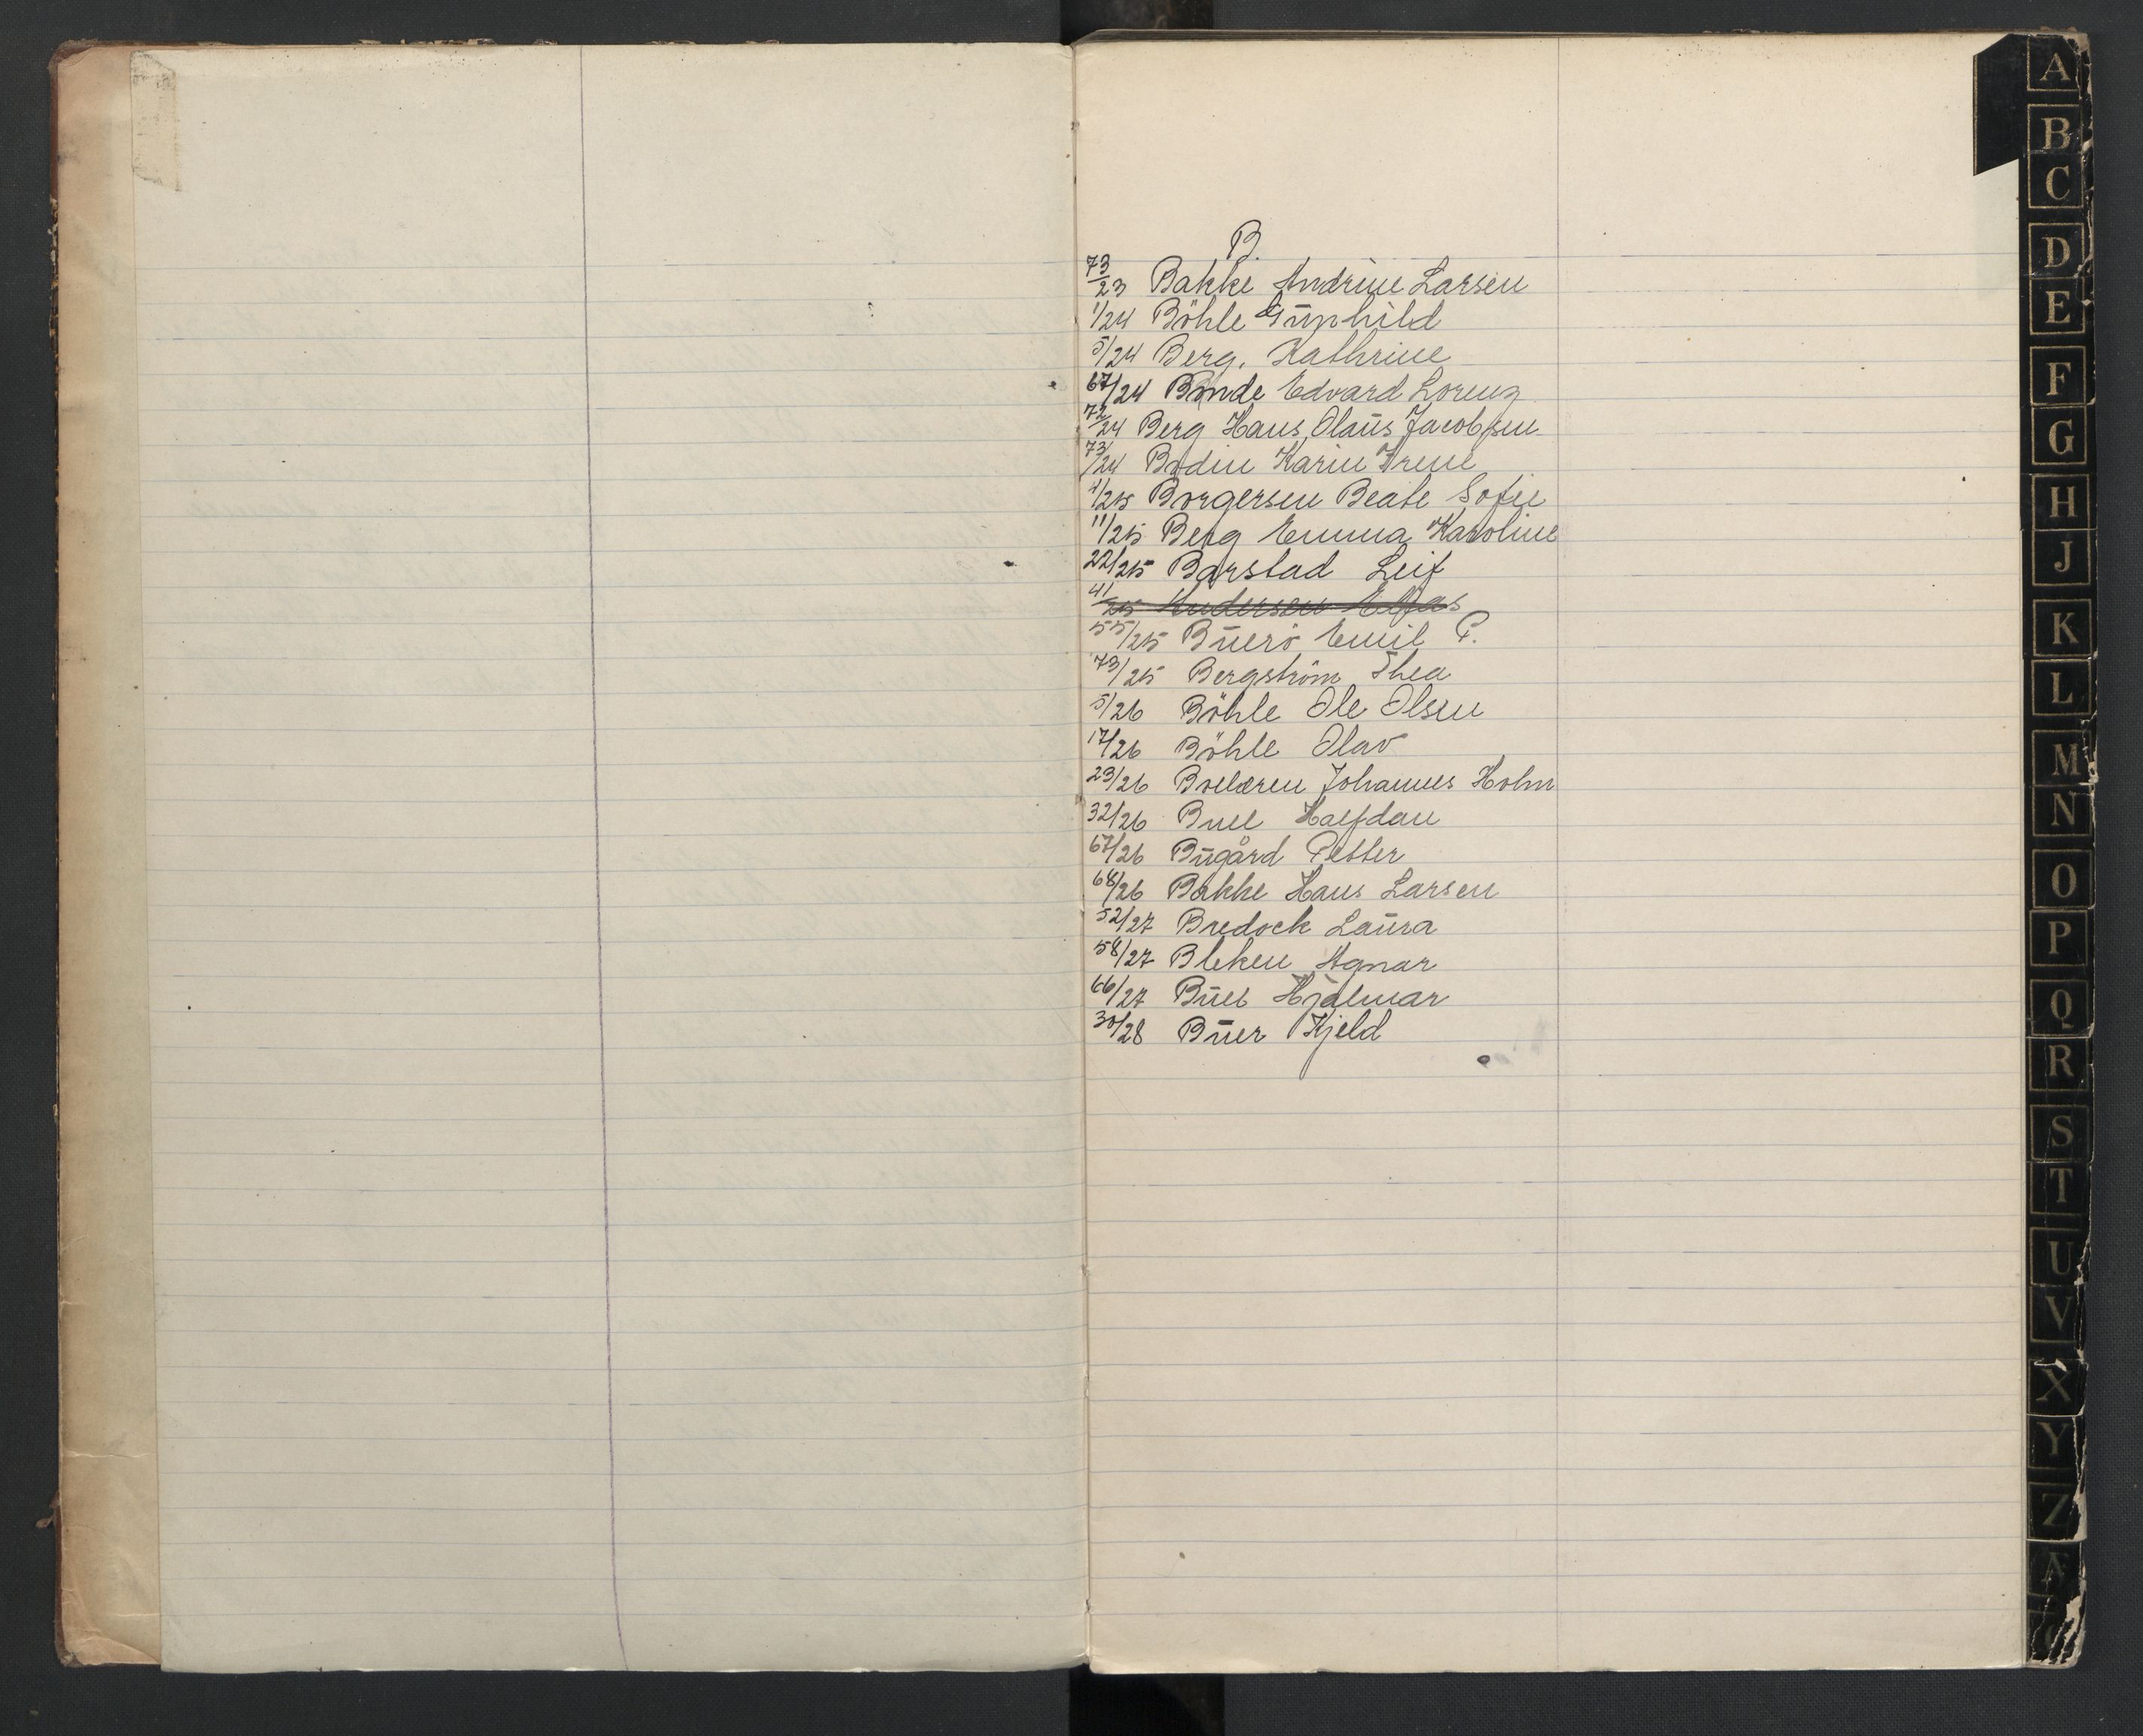 B.
73/23 Bakke Andrine Larsen
1/24 Böhle Gunhild
5/24 Berg, Kathrine
67/24 Bonde Edvard Lorenz
72/24 Berg Hans Olaus Jacobsen
73/24 Bodin Karin Irene
4/25 Borgersen Beate Sofie
11/25 Berg Emma Karoline
22/25 Barstad Leif
41/25 Andersen Elias
55/25 Buerö Emil P.
73/25 Bergström Thea
5/26 Böhle Ole Olsen
17/26 Böhle Olav
23/26 Bolæren Johannes Holm
32/26 Buer Halfdan
67/26 Bugård Petter
68/26 Bakke Hans Larsen
52/27 Bredock Laura
58/27 Bleken Agnar
66/27 Buer Hjalmar
30/28 Buer Kjeld
A
B
C
D
E
F
G
H
J
K
L
M
N
O
P
Q
R
S
T
U
V
X
Y
Z